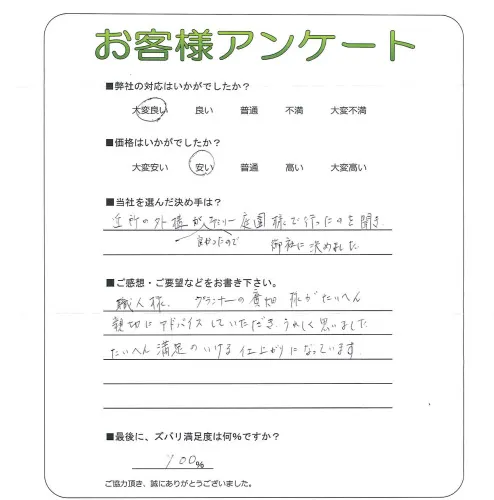 お客様アンケート
■弊社の対応はいかがでしたか？
大変良い 良い 普通 不満 大変不満
■価格はいかがでしたか？
大変安い 安い 普通 高い 大変高い
■当社を選んだ決め手は？
近所の外構が、ファミリー庭園様で行ったのを聞き
良かったので 御社に決めました
■ご感想・ご要望などをお書き下さい。
職人様、プランナーの廣畑様がたいへん
親切にアドバイスしていただき、うれしく思いました
たいへん満足のいける仕上がりになっています。
■最後に、ズバリ満足度は何％ですか？
100％
ご協力頂き、誠にありがとうございました。